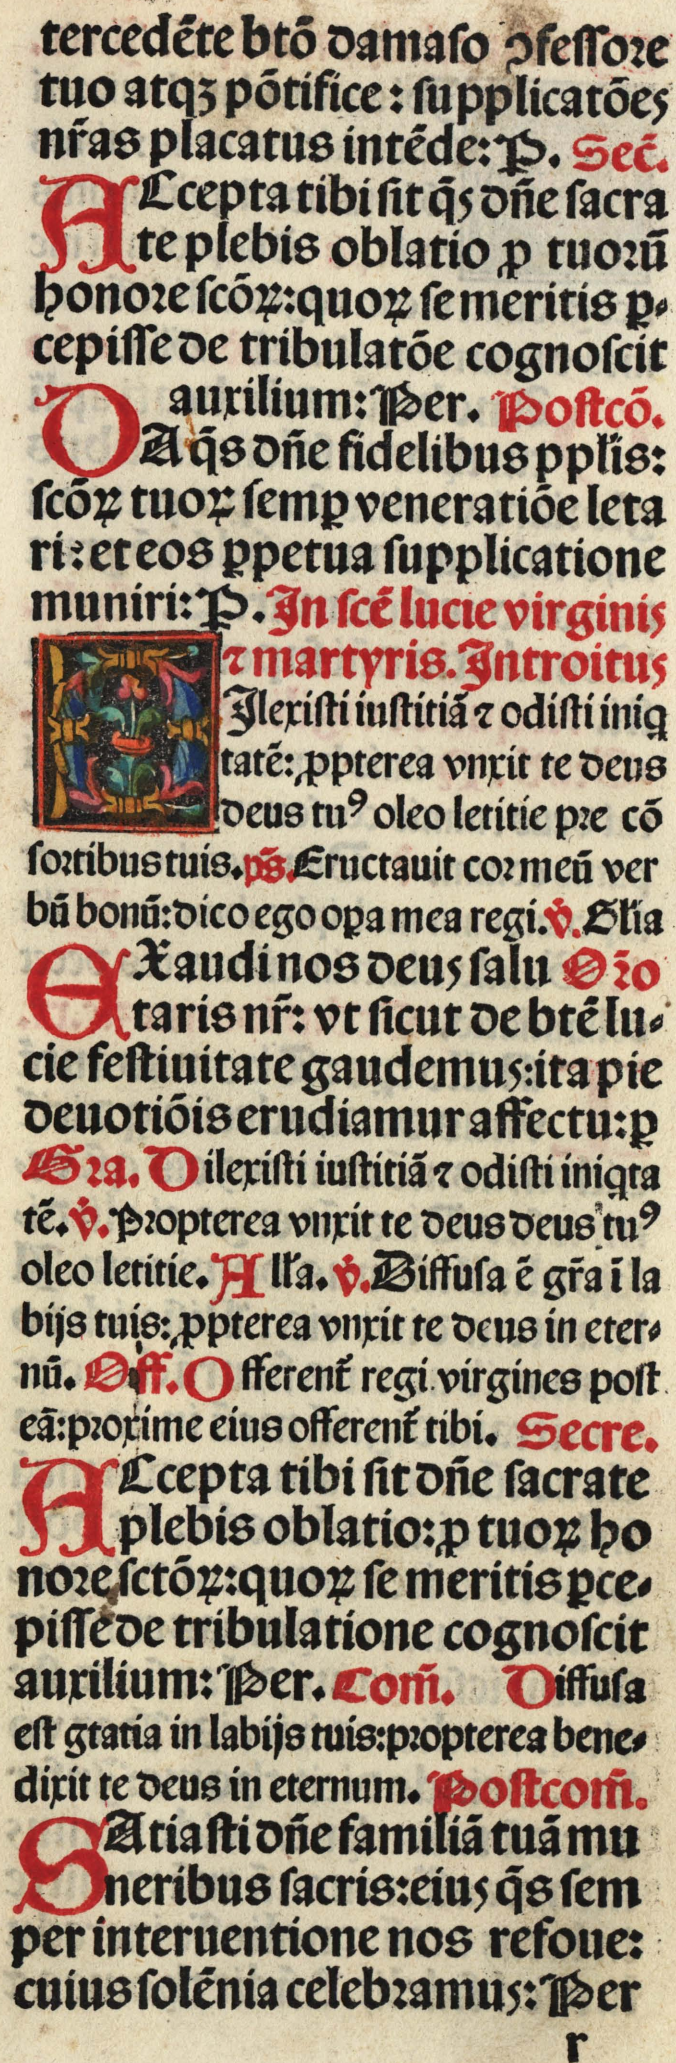 tercedēte btō damaſo ꝯfeſſoꝛe
tuo atqꝫ pōtifice: ſupplicatōes
nr̄as placatus intēde: P. Sec̄.
ACcepta tibi ſit q̄ꝫ dn̄e ſacra
te plebis oblatio ꝓ tuoꝛū
honoꝛe ſcōꝝ: quoꝝ ſe meritis ꝑ⸗
cepiſſe de tribulatōe cognoſcit
auxilium: Per. Poſtcō.
DA q̄s dn̄e fidelibus ppl̄is:
ſcōꝝ tuoꝝ ſemꝑ veneratiōe leta
ri: et eos ꝑpetua ſupplicatione
muniri: P. In ſcē lucie virginis
⁊ martyris. Introitus
DIlexiſti iuſtitiā ⁊ odiſti iniq
tatē: ꝓpterea vnxit te deus
deus tuꝰ oleo letitie pꝛe cō
ſoꝛtibus tuis. ps̄. Eructauit coꝛ meū ver
bū bonū: dico ego oꝑa mea regi. v̄. Gl̄ia
EXaudi nos deus ſalu Oꝛ̄o
taris nr̄: vt ſicut de btē lu⸗
cie feſtiuitate gaudemus: ita pie
deuotiōis erudiamur affectu: ꝑ
Gꝛa. Dilexiſti iuſtitiā ⁊ odiſti iniqta
tē. v̄. Pꝛopterea vnxit te deus deus tuꝰ
oleo letitie. All̄a. v̄. Diffuſa ē gr̄a ī la
bijs tuis: ꝓpterea vnxit te deus in eter⸗
nū. Off. Offerent̄ regi virgines poſt
eā: pꝛoxime eius offerent̄ tibi. Secre.
ACcepta tibi ſit dn̄e ſacrate
plebis oblatio: ꝓ tuoꝝ ho
noꝛe ſctōꝝ: quoꝝ ſe meritis ꝑce⸗
piſſe de tribulatione cognoſcit
auxilium: Per. Com̄. Diffuſa
eſt gtatia in labijs tuis: pꝛopterea bene⸗
dixit te deus in eternum. Poſtcom̄.
SAtiaſti dn̄e familiā tuā mu
neribus ſacris: eius q̄s ſem
per interuentione nos refoue:
cuius ſolēnia celebꝛamus: Per
r